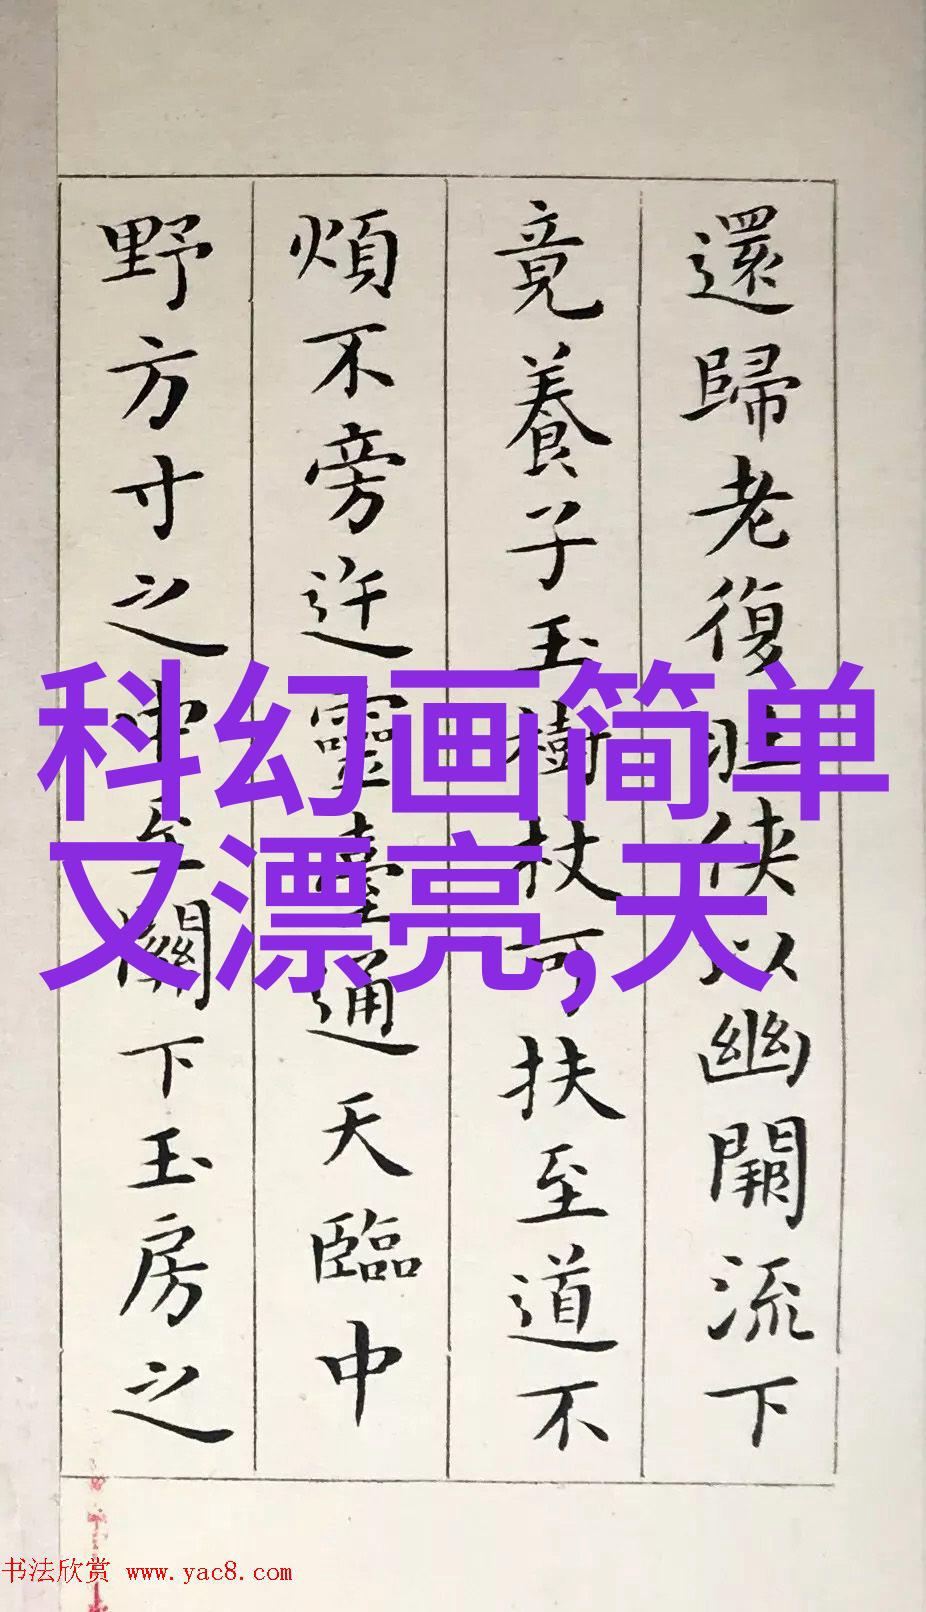 還歸老復壯俠以幽闕流下
竟養子玉樹杖可扶至道不
煩不旁迕靈臺通天臨中
野方寸之中至關下玉房之
科幻画简单
又漂亮,天
书法欣赏 www.yac8.com